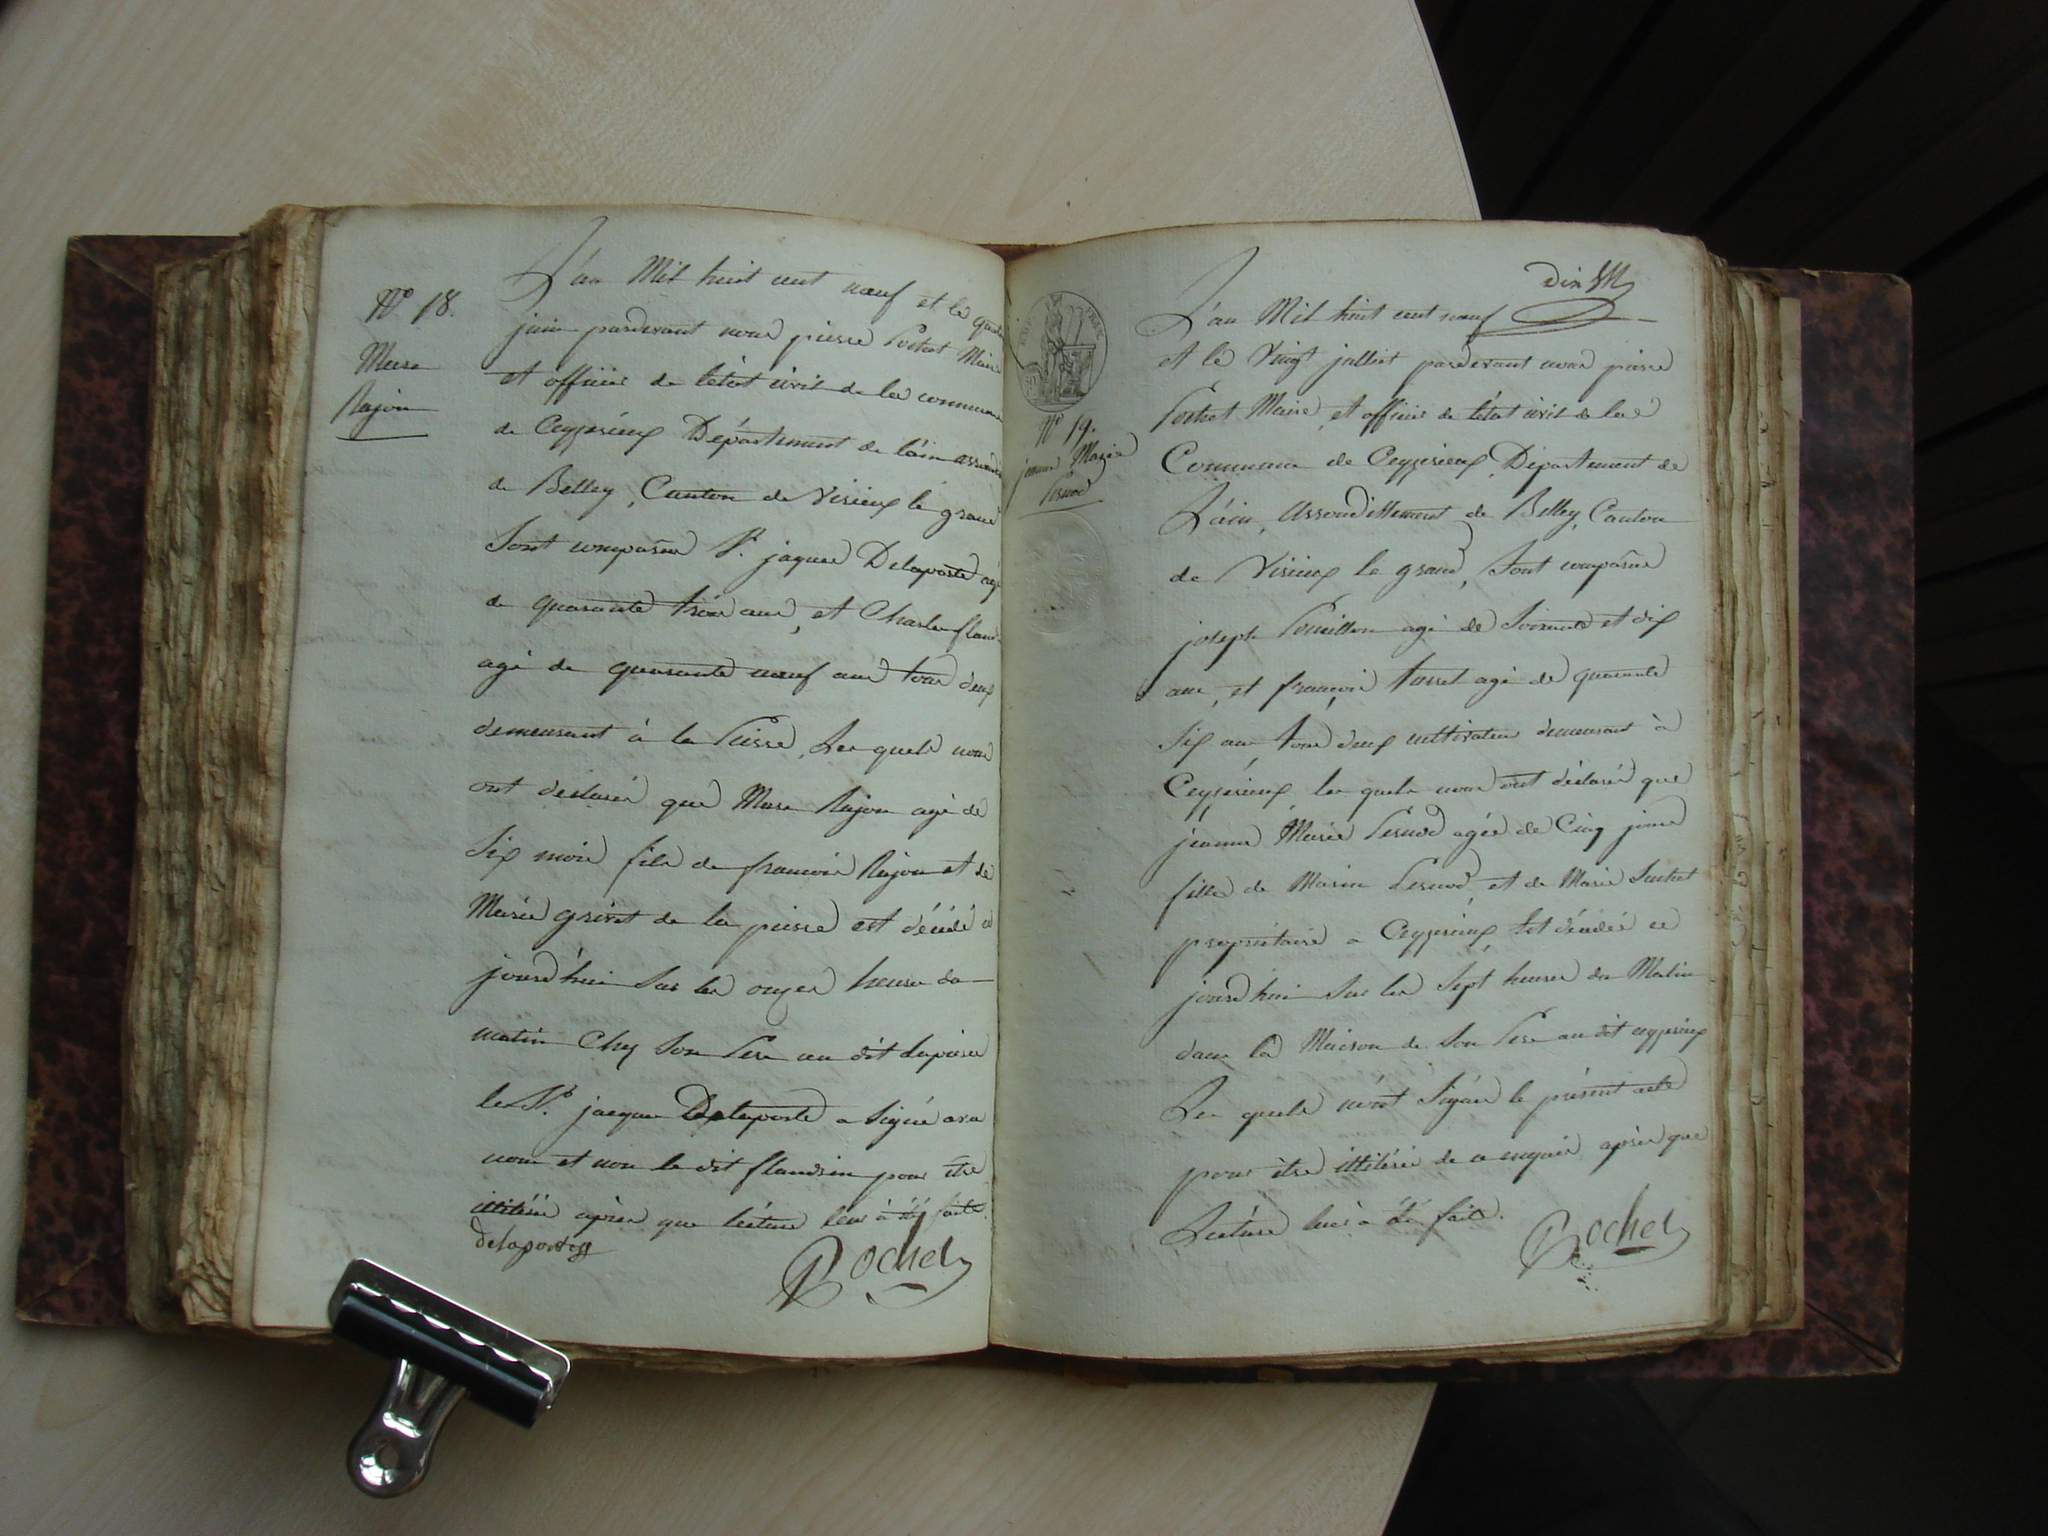 N.o 18.
Marc
Rajon
L'an Mil huit cent neuf et le
juin pardevant nous pierre Pochet Maire
et officier de l'état civil de la commune
de Ceyzérieux Département de l'ain
de Belley, Canton de Virieux le grand
Sont comparus S.r jaques Delaporte agé
de quarante trois ans, et Charles
agé de quarante neuf ans tous deux
demeurant à la Pierre, Les quels nous
ont déclaré que Marc Rajon agé de
Six mois fils de francois Rajon et de
Marie grivet de la pierre est décédé ce
jourd'hui Sur les onzes heures du
matin Chez Son Pere au dit lapierre
le S.r jacques Delaporte a Signé avec
nous et non le dit flandrin pour être
illitéré après que lécture leur à été faite.
delaporte
Pochet
N.o 19.
jeanne Marie
Pernod
L'an Mil huit cent neuf
et le Vingt julliet pardevant nous pierre
Pochet Maire, et officier de l'état civil de la
Commune de Ceyzerieux, Département de
L'ain, Arrondissement de Belley, Canton
de Virieux le grand, Sont comparus
joseph agé de Soixante et dix
ans, et françois agé de quarante
Six ans tous deux cultivateurs demeurant à
Ceyzérieux, les quels nous ont déclarés que
jeanne Marie Pernod agée de Cinq jours
fille de Marin Pernod, et de Marie
propriétaire a Ceyzerieux, est décédée ce
jourd'hui Sur les Sept heures du Matin
dans la Maison de Son Pere au dit ceyzerieux
Les quels n'ont Signés le présent acte
pour être illitérés de ce enquis après que
Lecture leur à été faite.
Pochet